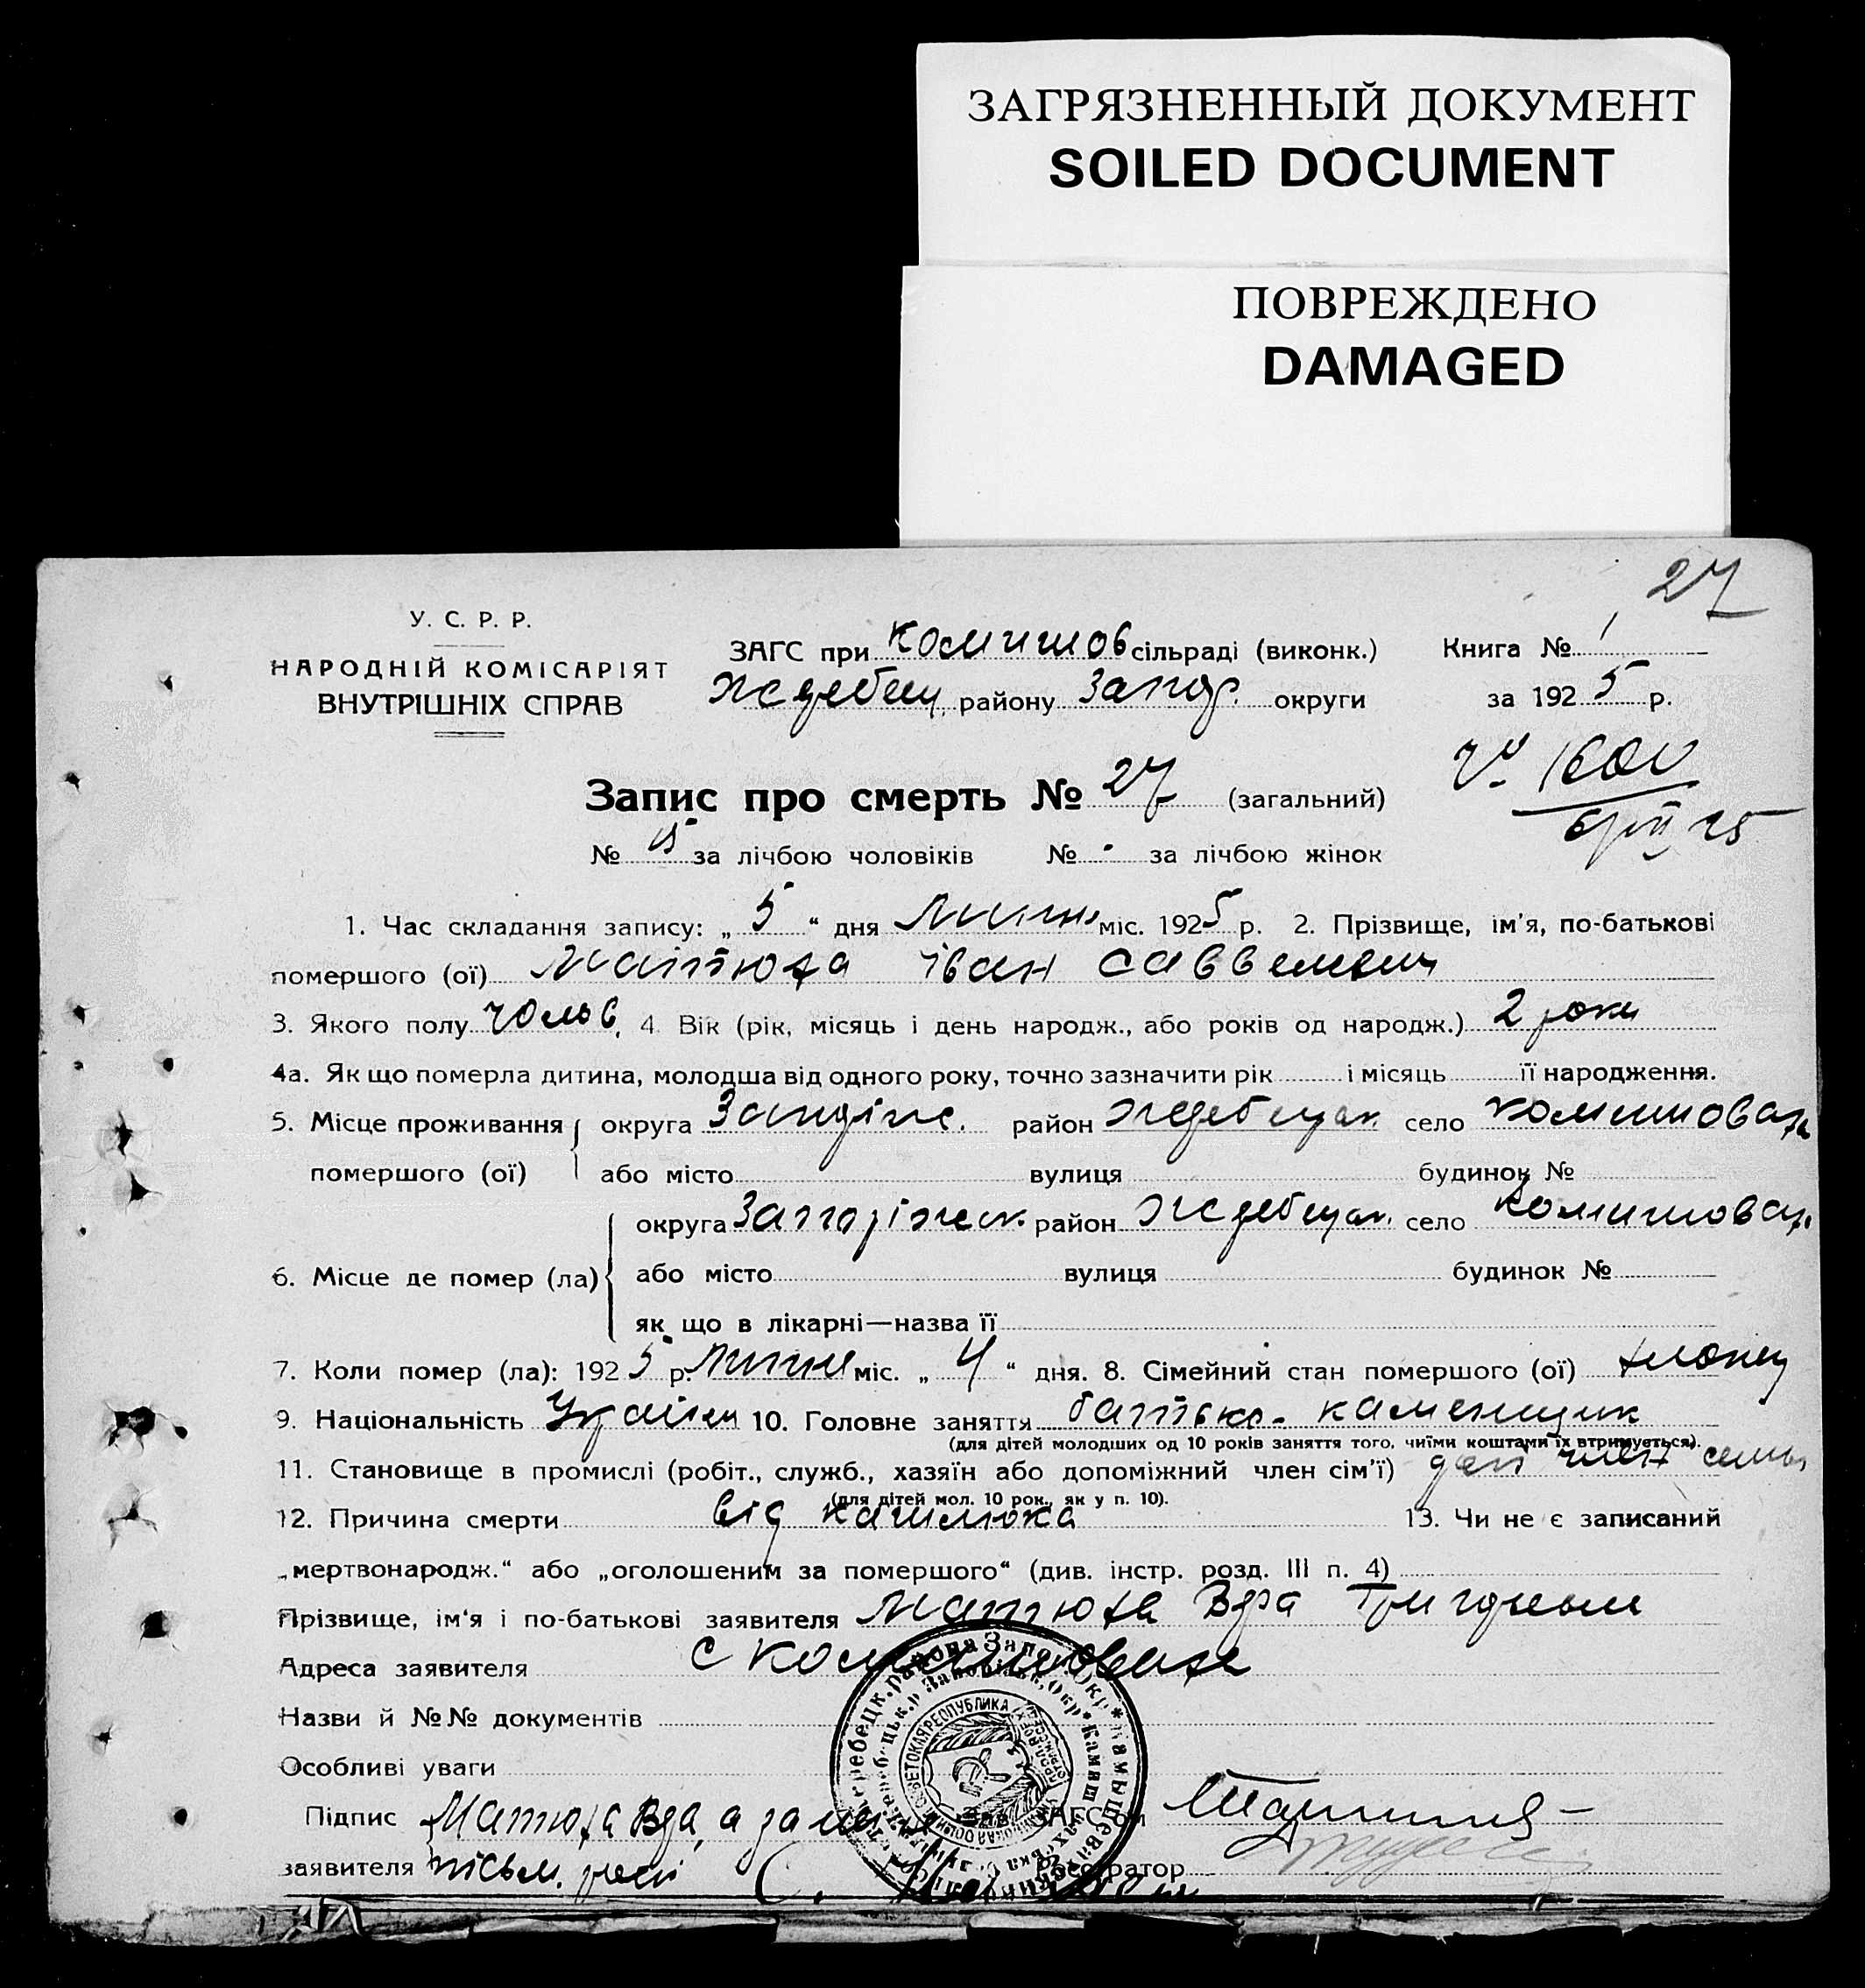 ЗАГРЯЗНЕННЫЙ ДОКУМЕНТ
SOILED DOCUMENT
ПОВРЕЖДЕНО
DAMAGED
27
У. С. Р. Р.
НАРОДНІЙ КОМІСАРІЯТ
ВНУТРІШНІХ СПРАВ
ЗАГС при Комишов сільраді (виконк.) Книга № 1
району Запор. округи за 1925 р.
Запис про смерть № 27 (загальний)
№ 15 за лічбою чоловіків № - за лічбою жінок
1. Час складання запису: „ 5 “ дня Липня міс. 1925 р. 2. Прізвище, ім'я, по-батькові
помершого (ої) Матюха Іван Саввелевич
3. Якого полу чолов. 4. Вік (рік, місяць і день народж., або років од народж.) 2 роки
4а. Як що померла дитина, молодша від одного року, точно зазначити рік і місяць її народження.
5. Місце проживання округа район село Комишоваха
помершого (ої) або місто вулиця будинок №
округа Запоріжск. район село Комишовах.
6. Місце де помер (ла) або місто вулиця будинок №
як що в лікарні—назва її
7. Коли помер (ла): 1925 р. Липня міс. „ 4 “ дня. 8. Сімейний стан помершого (ої) хлопец
9. Національність Україн 10. Головне заняття батько - каменщик
(для дітей молодших од 10 років заняття того, чиїми коштами їх втримується).
11. Становище в промислі (робіт., служб., хазяїн або допоміжний член сім'ї) член семьи
(для дітей мол. 10 рок., як у п. 10).
12. Причина смерти від кашлюка 13. Чи не є записаний
„мертвонародж.“ або „оголошеним за помершого“ (див. інстр. розд. III п. 4)
Прізвище, ім'я і по-батькові заявителя Матюха Вера
Адреса заявителя с Комишоваха
Назви й №№ документів
Особливі уваги
Підпис Матюха Вера, а за
заявителя
ЗАГС'ом
Реєстратор